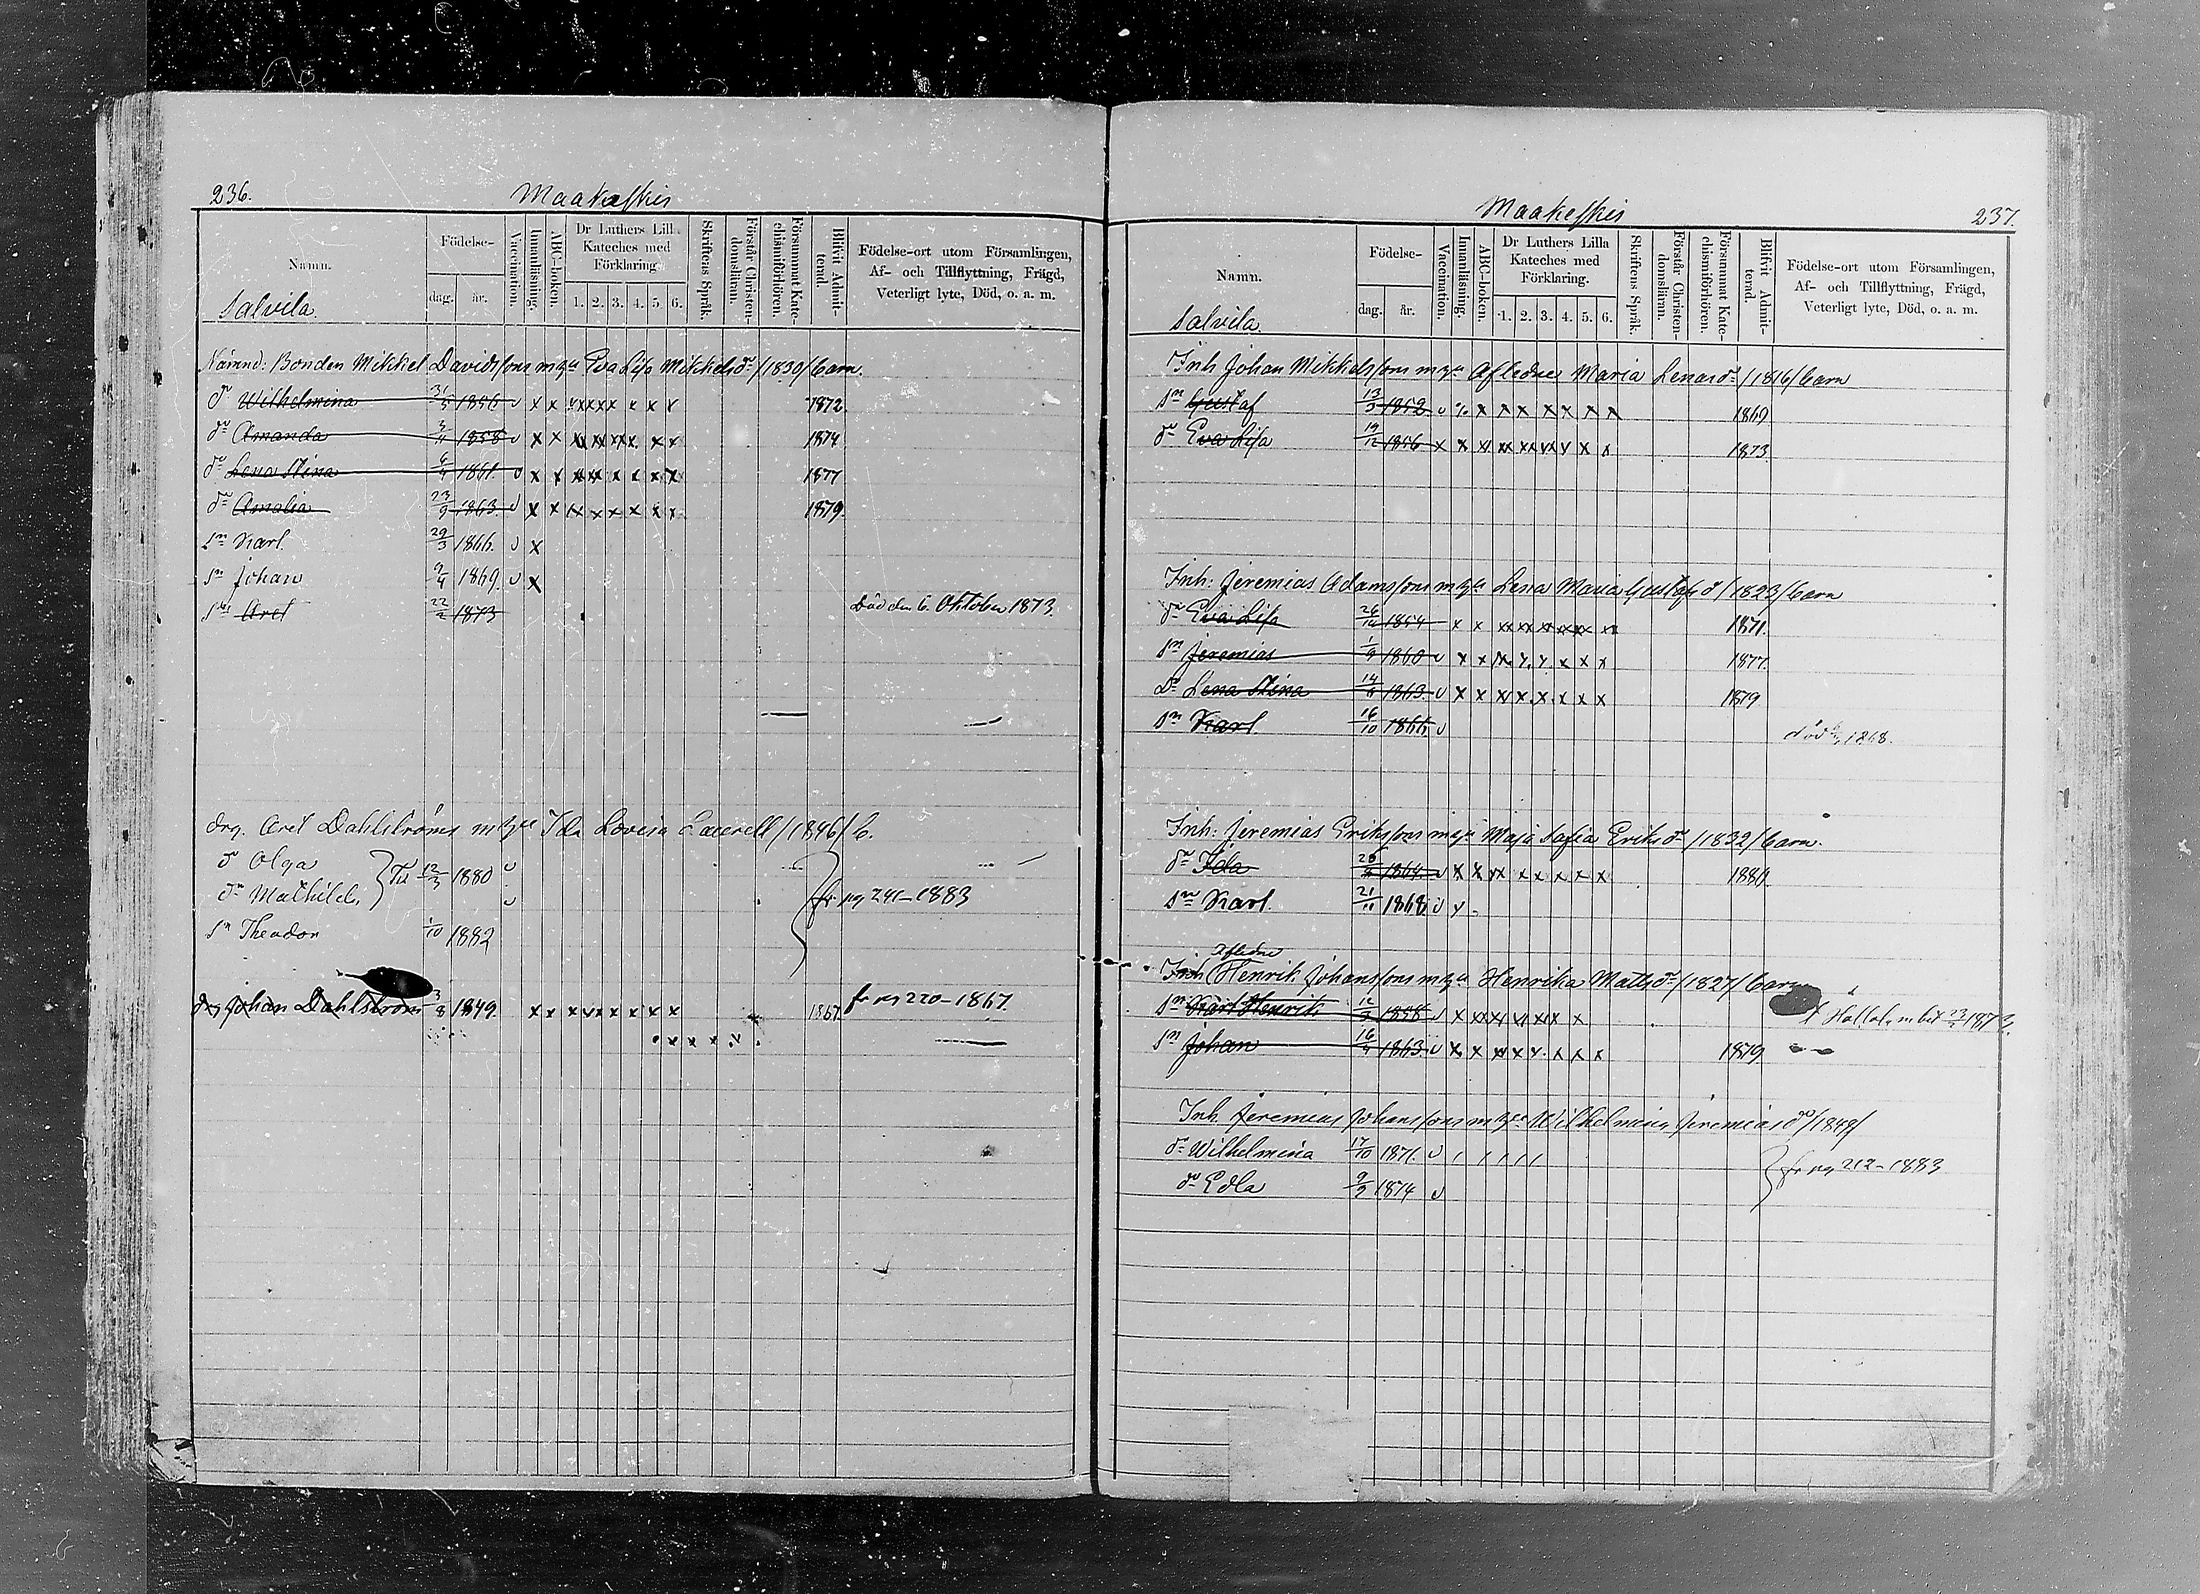 236.
Maakeskis
Namn.
Födelse-
dag.
år.
Vaccination.
Innanläsning.
ABC-boken.
Dr Luthers Lilla
Kateches med
Förklaring.
1. 2. 3. 4. 5. 6.
Skriftens Språk.
Förstår Christen-
domsläran.
Försummat Kate-
chismiförhören.
Blifvit Admit-
terad.
Födelse-ort utom Församlingen,
Af- och Tillflyttning, Frägd,
Veterligt lyte, Död, o. a. m.
Salvila.
Nämnd: Bonden Mikkel Davidssons m hu Eva Lisa Mikkelsdr /1839/ barn.
dr Wilhelmina 31/5 1856 v x x x x x x x x x 1872.
dr Amanda 3/4 1858 v x x x x x x x x 1874
dr Lena Stina 6/4 1861. v x x x x x x x x 1877
dr Amalia 23/9 1863. v x x x x x x x x 1879.
sn Karl. 29/3 1866. v x
sn Johan 9/4 1869. v x
sn Axel 22/2 1873 Död den 6. Oktober 1873.
drg. Axel Dahlströms m hu Ida Lovisa /1846/ b.
dr Olga
dr Mathilda } 12/3 1880 v v
sn Theodor 1/10 1882
} fr. pg 241-1883
drg Johan Dahlström 3/8 1849. x x x x x x x x 1867. fr pg 220-1867.
Maakeskis
237.
Namn.
Födelse-
dag.
år.
Vaccination.
Innanläsning.
ABC-boken.
Dr Luthers Lilla
Kateches med
Förklaring.
1. 2. 3. 4. 5. 6.
Skriftens Språk.
Förstår Christen-
domsläran.
Försummat Kate-
chismiförhören.
Blifvit Admit-
terad.
Födelse-ort utom Församlingen,
Af- och Tillflyttning, Frägd,
Veterligt lyte, Död, o. a. m.
Salvila.
Inh Johan Mikkelssons m hu Aflidne Maria Lenasdr /1816/ barn
sn Gustaf 13/3 1852. v x x x x x x x x 1869
dr Eva Lisa 19/12 1856 x x x x x x x x x 1873.
Inh: Jeremias Adamssons m hu Lena Maria Gustafsdr /1823/ barn
dr Eva Lisa 1854 x x x x x x x x 1871.
sn Jeremias 1/9 1860 v x x x x x x x x 1877.
Dr Lena Stina 14/6 1863. v x x x x x x x x 1879
sn Karl. 16/10 1866. v död 1868.
Inh: Jeremias Erikssons m hu Maja Sofia Eriksdr /1832/ barn.
dr Ida 1864. v x x x x x x x x
sn Karl. 21/11 1868 v x
Aflidne
Inh Henrik Johanssons m hu Henrika Matsdr /1827/ barn
sn Karl Henrik 12/3 1858 v x x x x x x x x m bet 1873.
sn Johan 16/4 1863 v x x x x x x x x 1879
Inh. Jeremias Johanssons m hu Wilhelmina Jeremiasdr /1849/
dr Wilhelmina 17/10 1871. v
dr Edla 9/9 1874 v
} fr pg 212-1883